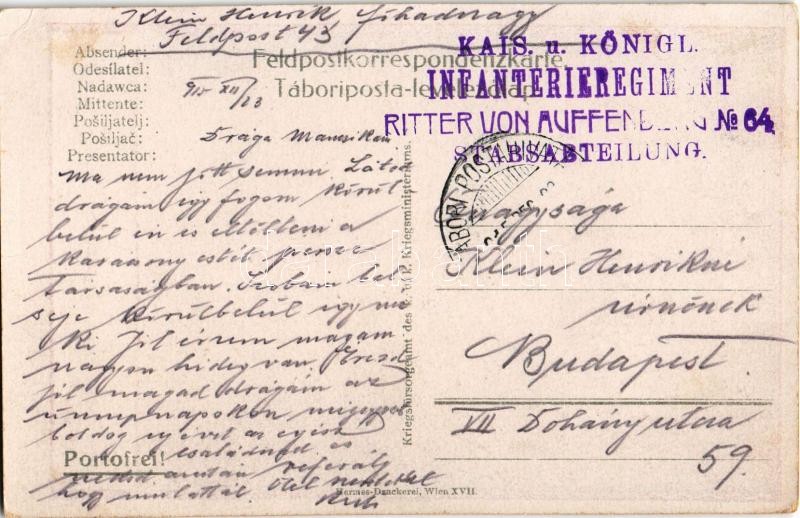 Klein Henrik főhadnagy
Feldpost 43
Absender:
Odesílatel:
Nadawca:
Mittente:
Pošiljatelj:
Pošiljač:
Presentator:
Feldpostkorrespondenzkarte
Tábori posta-levelezőlap
915 XII/23
KAIS. u. KÖNIGL.
INFANTERIEREGIMENT
RITTER VON AUFFENBERG № 64.
STABSABTEILUNG.
TÁBORI POSTAHIVATAL
Drága Mamsikám
Ma nem jött semmi. Látod
drágám így fogom körül
belül én is eltölteni a
karácsony estét persze
társaságban. Szobám bel
seje körülbelül így néz
ki. Jól érzem magam
nagyon hideg van. Érezd
jól magad drágám az
ünnepnapokon
boldog új évet az egész
családnak és
azután referálj
hogy mulattál. Ölel
Nagysága
Klein Henrikné
úrnőnek
Budapest.
VII Dohány utca
59.
Portofrei!
Kriegsfürsorgeamt des k. u. k. Kriegsministeriums.
Hermes-Druckerei, Wien XVII.
darabanth